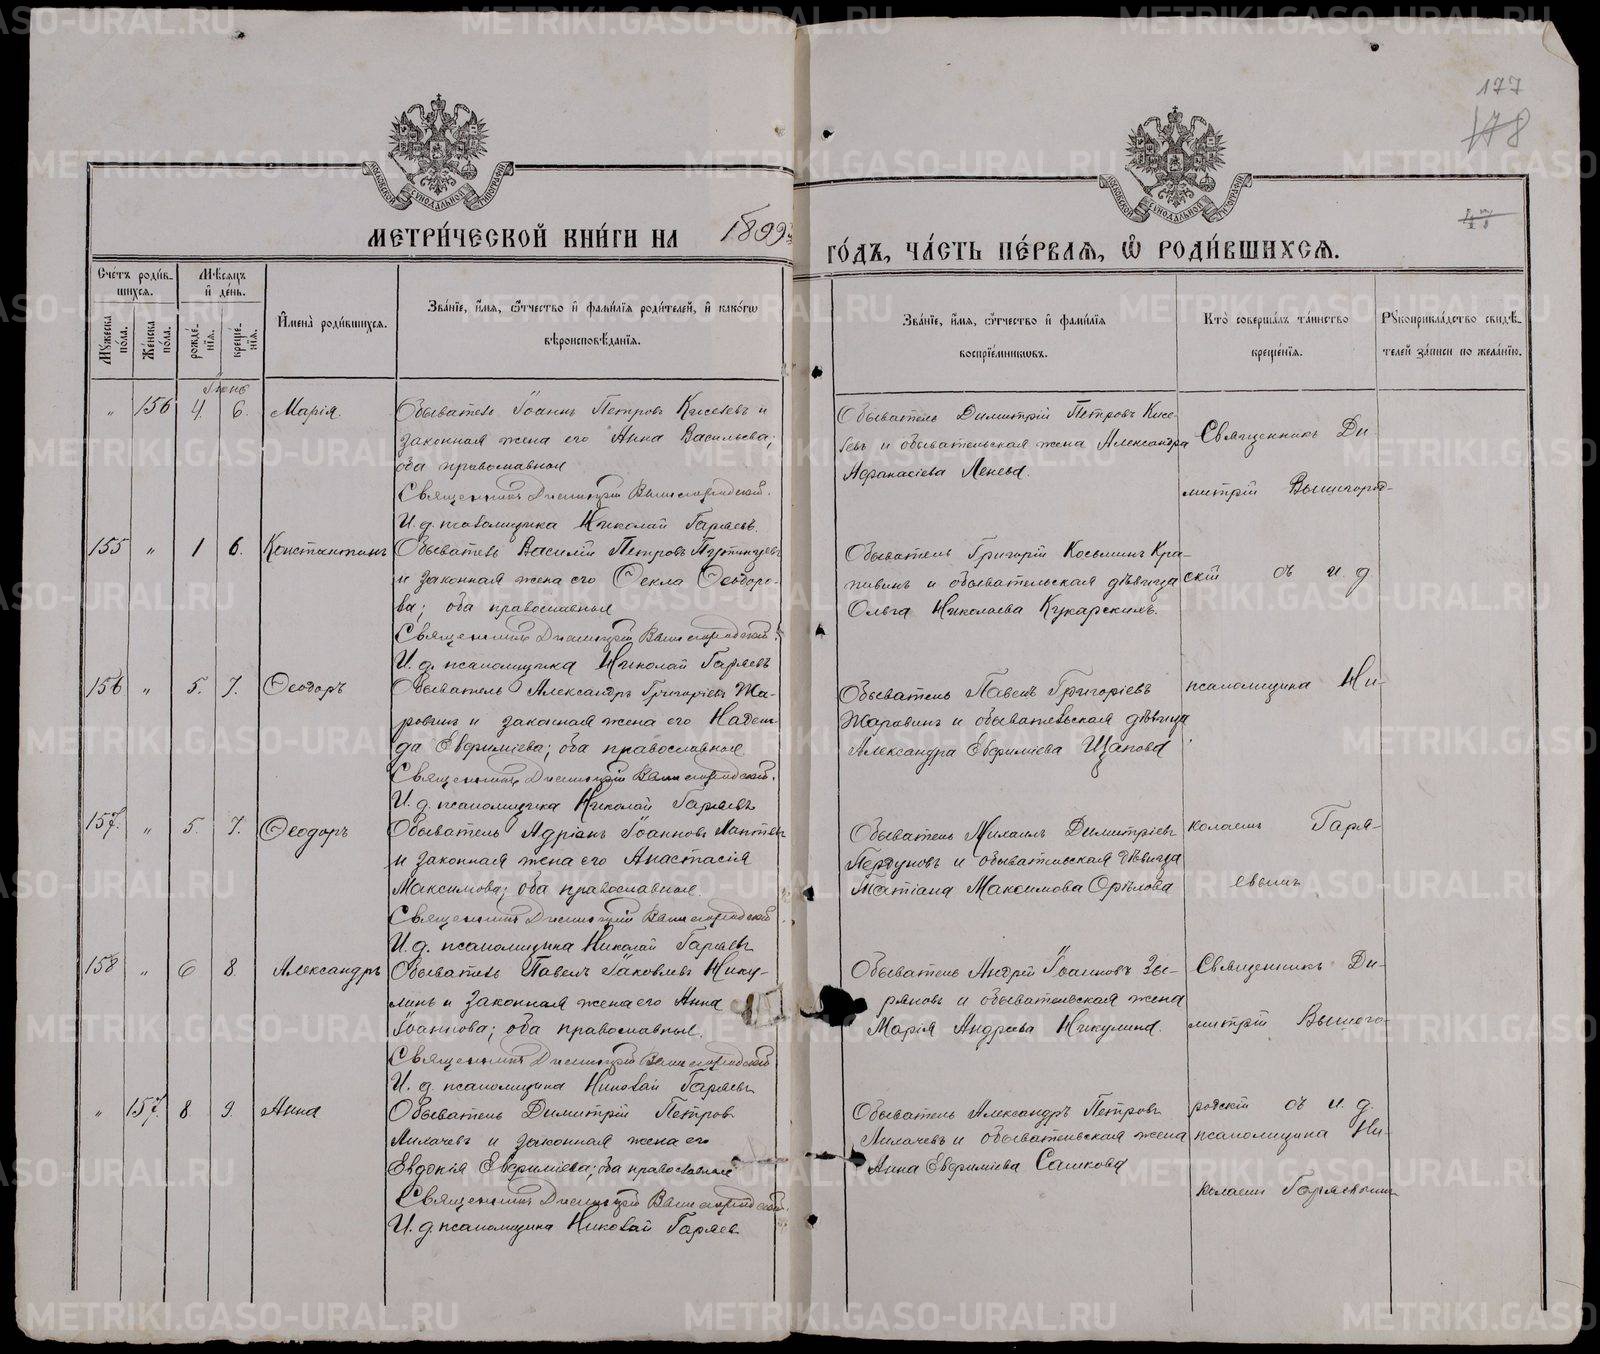 177
178
47
МОСКОВСКОЙ СѴНОДАЛЬНОЙ ТИПОГРАФІИ
МОСКОВСКОЙ СѴНОДАЛЬНОЙ ТИПОГРАФІИ
МЕТРИ́ЧЕСКОЙ КНИ́ГИ НА 1899й
ГО́ДЪ, ЧА́СТЬ ПЕ́РВАЯ, Ѿ РОДИ́ВШИХСЯ.
Сче́тъ роди́в-
шихся.
Му́жеска по́ла.
Же́нска по́ла.
Мѣ́сяцъ
и де́нь.
рожде́-
нїя.
креще́-
нїя.
И҆мена̀ роди́вшихся.
Зва́нїе, и҆́мя, ѻ҆́тчество и҆ фами́лїя роди́телей, и҆ како́гѡ
вѣроисповѣ́данїя.
Зва́нїе, и҆́мя, ѻ҆́тчество и҆ фами́лїя
воспрїе́мникѡвъ.
Кто̀ соверша́лъ та́инство
креще́нїя.
Рꙋкоприкла́дство свидѣ́-
телей за́писи по жела́нїю.
Іюнь
„ 156 4 6. Марія.
Обыватель Іоаннъ Петровъ Киселевъ и
законная жена его Анна Васильева;
оба православные
Священникъ Димитрій Вышегородскій.
И. д. псаломщика Николай Гаряевъ.
Обыватель Димитрій Петровъ Кисе-
левъ и обывательская жена Александра
Афанасіева Ленева.
Священникъ Ди-
митрій Вышегород-
155 „ 1 6. Константинъ
Обыватель Василій Петровъ
и законная жена его Ѳекла Ѳеодоро-
ва; оба православные
Священникъ Димитрій Вышегородскій.
И. д. псаломщика Николай Гаряевъ
Обыватель Григорій Косьминъ Кра-
пивинъ и обывательская дѣвица
Ольга Николаева Кукарскихъ.
скій съ и. д
156 „ 5. 7. Ѳеодоръ
Обыватель Александръ Григоріевъ Жа-
ровинъ и законная жена его Надеж-
да Евфиміева; оба православные
Священникъ Димитрій Вышегородскій.
И. д. псаломщика Николай Гаряевъ
Обыватель Павелъ Григоріевъ
Жаравинъ и обывательская дѣвица
Александра Евфиміева Щапова
псаломщика Ни-
157. „ 5. 7. Ѳеодоръ
Обыватель Адріанъ Іоанновъ Лаптевъ
и законная жена его Анастасія
Максимова; оба православные.
Священникъ Димитрій Вышегородскій
И. д. псаломщика Николай Гаряевъ
Обыватель Михаилъ Димитріевъ
и обывательская дѣвица
Татіана Максимова Орѣлова
колаемъ Гаря-
евымъ
158 „ 6 8. Александръ
Обыватель Павелъ Іаковлевъ Нику-
линъ и законная жена его Анна
Іоаннова; оба православные.
Священникъ Димитрій Вышегородскій
И. д. псаломщика Николай Гаряевъ
Обыватель Андрей Іоанновъ Зы-
ряновъ и обывательская жена
Марія Андреева Никулина.
Священникъ Ди-
митрій Вышего-
„ 157. 8 9. Анна
Обыватель Димитрій Петров
Лихачевъ и законная жена его
Евдокія Евфиміева; оба православные
Священникъ Димитрій Вышегородскій.
И. д. псаломщика Николай Гаряев
Обыватель Александръ Петровъ
Лихачевъ и обывательская жена
Анна Евфиміева Сашкова
родскій съ и. д.
псаломщика Ни-
колаемъ Гаряевымъ
METRIKI.GASO-URAL.RU